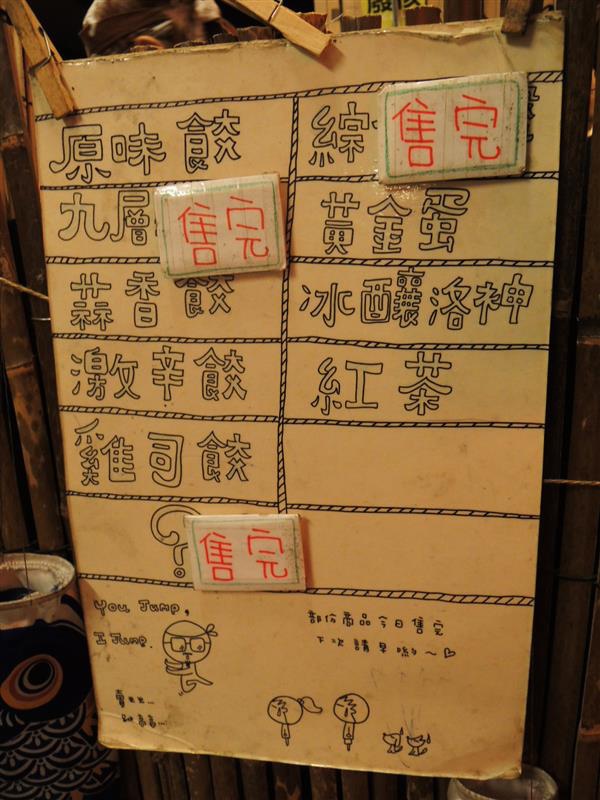 原味餃
九層
售完
蒜香餃
激辛餃
雞司餃
?
售完
綜
售完
黃金蛋
冰釀洛神
紅茶
You Jump,
I Jump.
部份商品今日售完
下次請早喲~♡